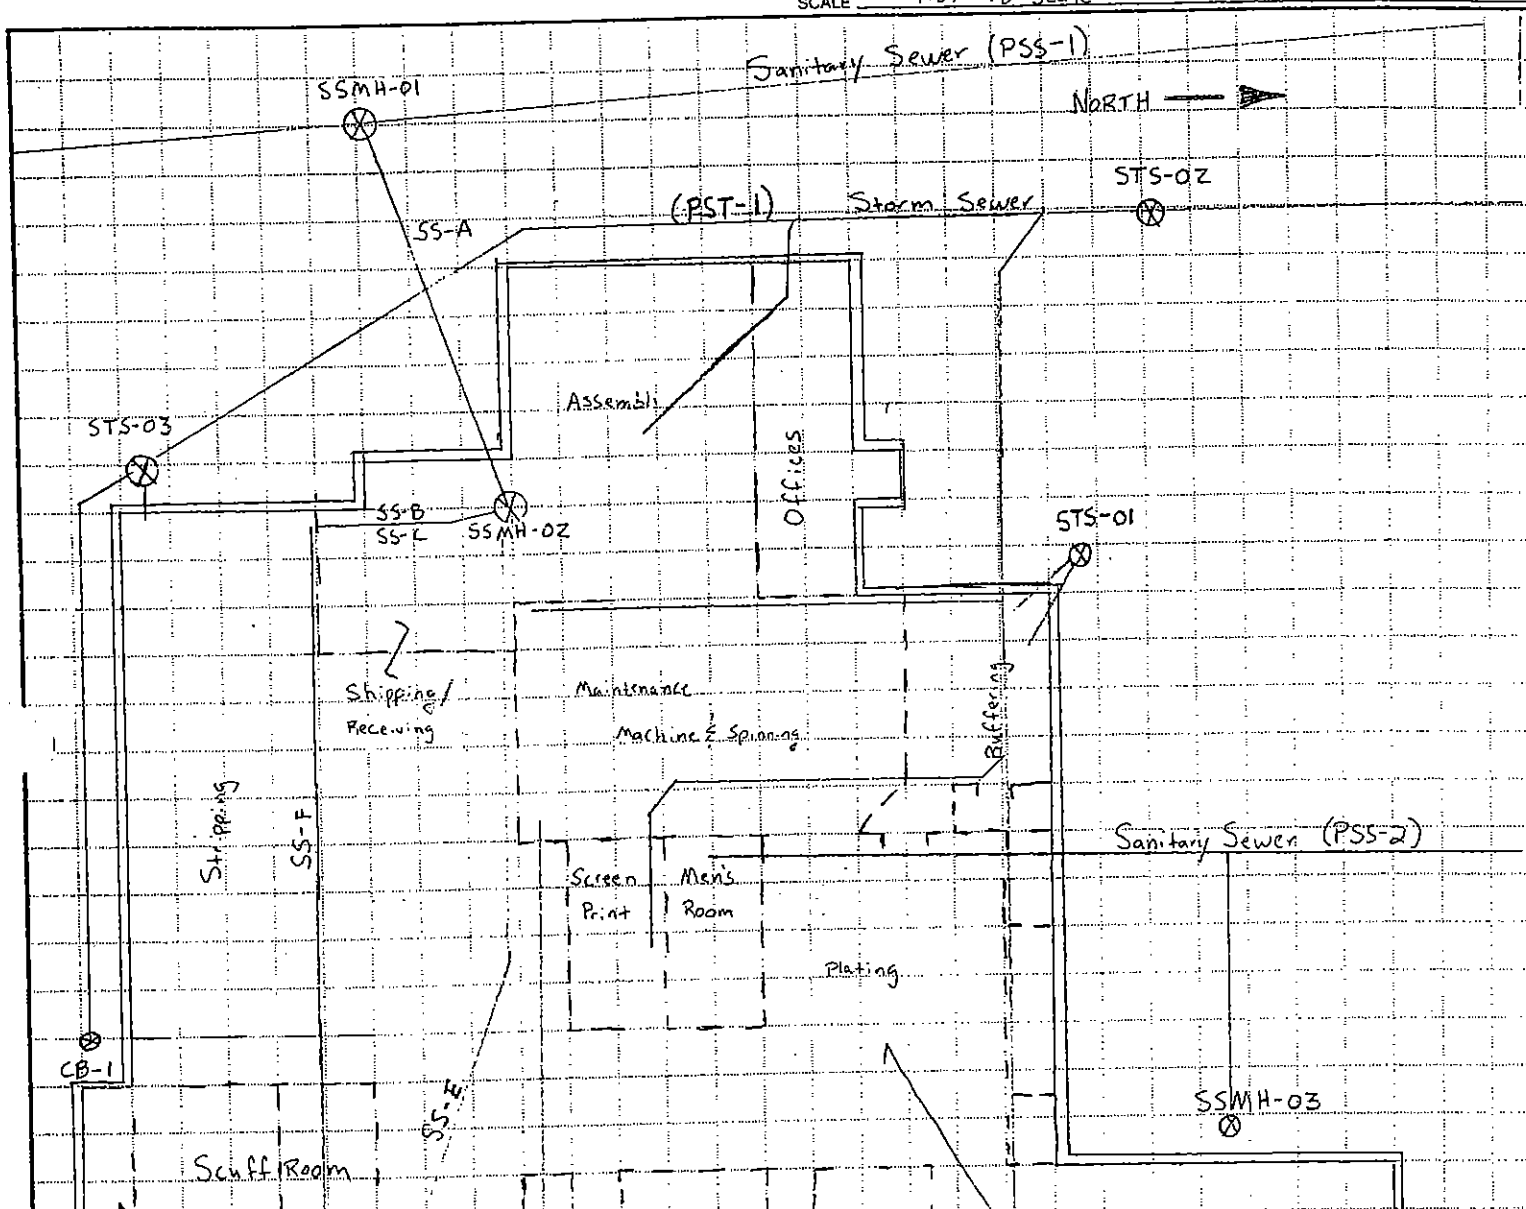 SCALE
Sanitary Sewer (PSS-1)
SSMH-01
NORTH
STS-02
(PST-1)
Storm Sewer
SS-A
Assembli
STS-03
Offices
SS-B
SS-C
SSMH-02
STS-01
Shipping/
Receiving
Maintenance
Machine & Spinning
Buffering
Stripping
SS-F
Sanitary Sewer (PSS-2)
Screen
Print
Men's
Room
Plating
CB-1
SS-E
SSMH-03
Scuff Room